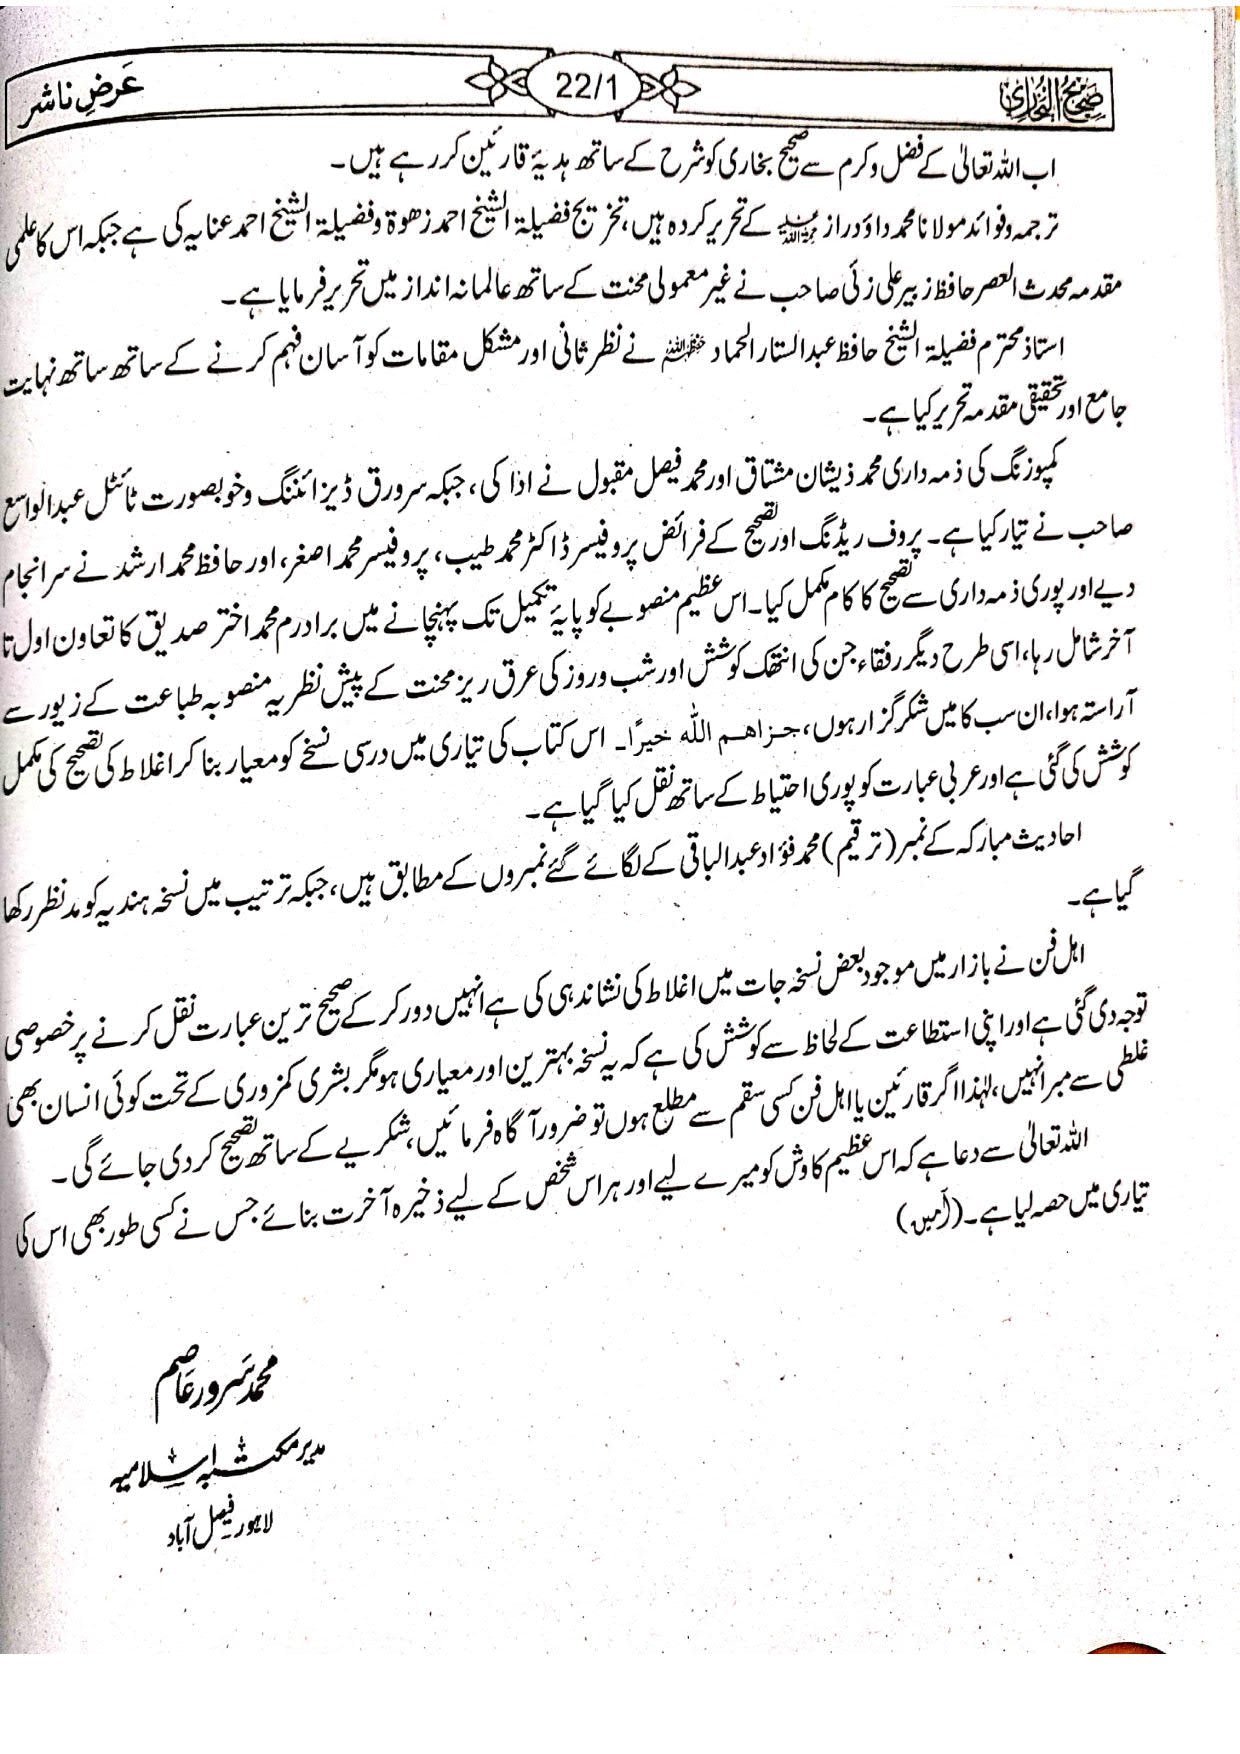 صحیح البخاری
22/1
عَرضِ ناشر
اب اللہ تعالیٰ کے فضل و کرم سے صحیح بخاری کو شرح کے ساتھ ہدیۂ قارئین کر رہے ہیں۔
ترجمہ و فوائد مولانا محمد داؤد راز رحمہ اللہ کے تحریر کردہ ہیں، تخریج فضیلۃ الشیخ احمد زهوة و فضیلۃ الشیخ احمد عنایہ کی ہے جبکہ اس کا علمی
مقدمہ محدث العصر حافظ زبیر علی زئی صاحب نے غیر معمولی محنت کے ساتھ عالمانہ انداز میں تحریر فرمایا ہے۔
استاذ محترم فضیلۃ الشیخ حافظ عبدالستار الحماد حفظہ اللہ نے نظر ثانی اور مشکل مقامات کو آسان فہم کرنے کے ساتھ ساتھ نہایت
جامع اور تحقیقی مقدمہ تحریر کیا ہے۔
کمپوزنگ کی ذمہ داری محمد ذیشان مشتاق اور محمد فیصل مقبول نے ادا کی، جبکہ سرورق ڈیزائننگ و خوبصورت ٹائٹل عبدالواسع
صاحب نے تیار کیا ہے۔ پروف ریڈنگ اور تصحیح کے فرائض پروفیسر ڈاکٹر محمد طیب، پروفیسر محمد اصغر، اور حافظ محمد ارشد نے سرانجام
دیے اور پوری ذمہ داری سے تصحیح کا کام مکمل کیا۔ اس عظیم منصوبے کو پایۂ تکمیل تک پہنچانے میں برادرم محمد اختر صدیق کا تعاون اول تا
آخر شامل رہا، اسی طرح دیگر رفقاء جن کی انتھک کوشش اور شب و روز کی عرق ریز محنت کے پیش نظر یہ منصوبہ طباعت کے زیور سے
آراستہ ہوا، ان سب کا میں شکر گزار ہوں، جزاهم الله خيرًا۔ اس کتاب کی تیاری میں درسی نسخے کو معیار بنا کر اغلاط کی تصحیح کی مکمل
کوشش کی گئی ہے اور عربی عبارت کو پوری احتیاط کے ساتھ نقل کیا گیا ہے۔
احادیث مبارکہ کے نمبر (ترقیم) محمد فؤاد عبدالباقی کے لگائے گئے نمبروں کے مطابق ہیں، جبکہ ترتیب میں نسخہ ہندیہ کو مدنظر رکھا
گیا ہے۔
اہل فن نے بازار میں موجود بعض نسخہ جات میں اغلاط کی نشاندہی کی ہے انہیں دور کر کے صحیح ترین عبارت نقل کرنے پر خصوصی
توجہ دی گئی ہے اور اپنی استطاعت کے لحاظ سے کوشش کی ہے کہ یہ نسخہ بہترین اور معیاری ہو مگر بشری کمزوری کے تحت کوئی انسان بھی
غلطی سے مبرا نہیں، لہٰذا اگر قارئین یا اہل فن کسی سقم سے مطلع ہوں تو ضرور آگاہ فرمائیں، شکریے کے ساتھ تصحیح کر دی جائے گی۔
اللہ تعالیٰ سے دعا ہے کہ اس عظیم کاوش کو میرے لیے اور ہر اس شخص کے لیے ذخیرہ آخرت بنائے جس نے کسی طور بھی اس کی
تیاری میں حصہ لیا ہے۔ (آمین)
محمد سرور عاصم
مدیر مکتبہ اسلامیہ
لاہور۔ فیصل آباد